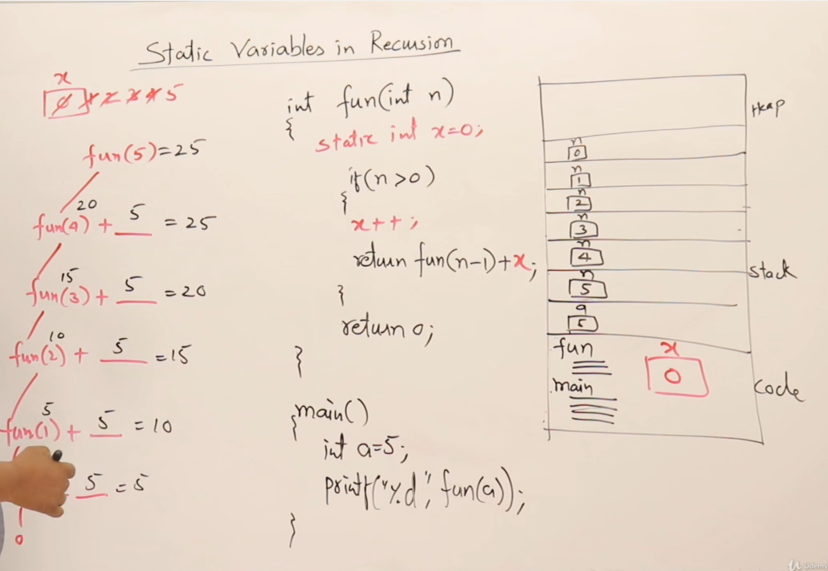 Static Variables in Recursion
x
0 1 2 3 4 5
fun(5)=25
20
fun(4) + 5 = 25
15
fun(3) + 5 = 20
10
fun(2) + 5 = 15
5
fun(1) + 5 = 10
5 = 5
0
int fun(int n)
{
static int x=0;
if(n>0)
{
x++;
return fun(n-1)+x;
}
return 0;
}
main()
{
int a=5;
printf("%d", fun(a));
}
Heap
n
0
n
1
n
2
n
3
n
4
n
5
a
5
stack
fun
main
x
0
code
Udemy